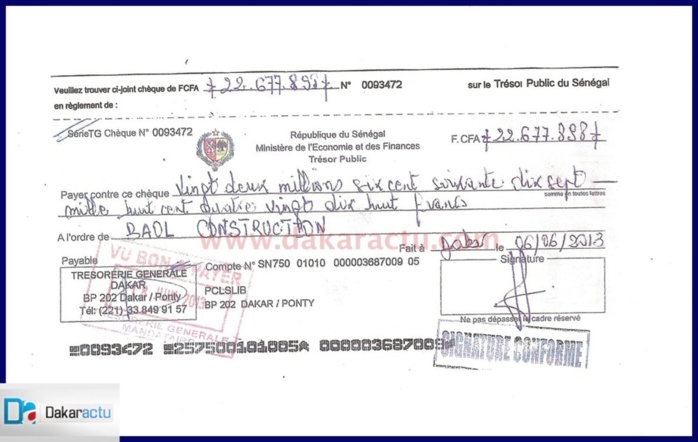 Veuillez trouver ci-joint chèque de FCFA ≠22.677.898≠ N° 0093472 sur le Trésor Public du Sénégal
en règlement de :
SérieTG Chèque N° 0093472
République du Sénégal
Ministère de l'Economie et des Finances
Trésor Public
F.CFA ≠22.677.898≠
Payez contre ce chèque Vingt deux millions six cent soixante dix sept
somme en toutes lettres
mille huit cent quatre vingt dix huit francs
A l'ordre de BAOL CONSTRUCTION
www.dakaractu.com
Fait à Dakar le 06/06/2013
Payable
TRESORERIE GENERALE
DAKAR
BP 202 Dakar / Ponty
Tél: (221) 33 849 91 57
VU BON A PAYER
2013
TRESORERIE GENERALE
Compte N° SN750 01010 000003687009 05
PCLSLIB
BP 202 DAKAR / PONTY
Signature
Ne pas dépasser le cadre réservé
SIGNATURE CONFORME
0093472 257500101005A 000003687009
Dakaractu